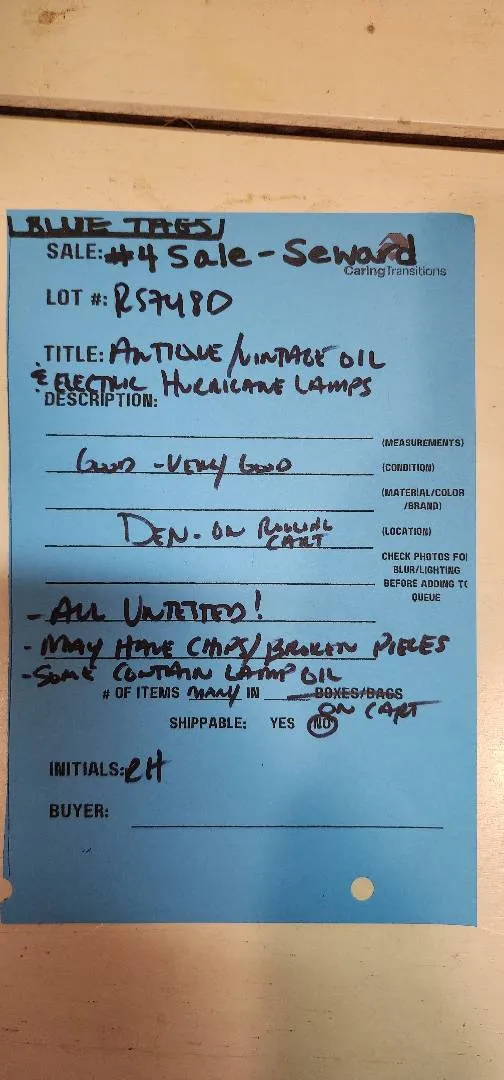 BLUE TAGS
SALE: #4 Sale - Seward
CaringTransitions
LOT #: RS748D
TITLE: ANTIQUE/VINTAGE OIL
& ELECTRIC HURRICANE LAMPS
DESCRIPTION:
(MEASUREMENTS)
GOOD - VERY GOOD (CONDITION)
(MATERIAL/COLOR
/BRAND)
DEN - ON ROLLING
CART
(LOCATION)
CHECK PHOTOS FO
BLUR/LIGHTING
BEFORE ADDING TO
QUEUE
- ALL UNTETTED!
- MAY HAVE CHIPS/BROKEN PIECES
- SOME CONTAIN LAMP OIL
# OF ITEMS MANY IN BOXES/BAGS
ON CART
SHIPPABLE: YES NO
INITIALS: RH
BUYER: